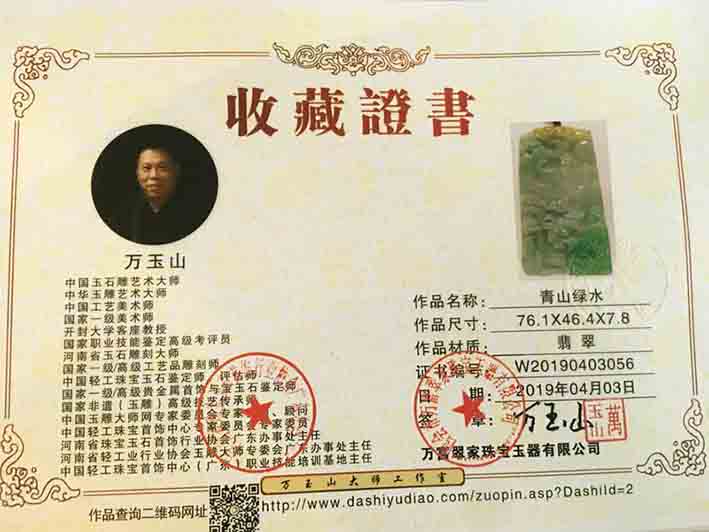 收藏證書
万玉山
中国玉石雕艺术大师
中华玉雕艺术大师
中国工艺美术师
国家一级美术师
开封大学客座教授
国家职业技能鉴定高级考评员
河南省玉石雕刻大师
国家一级/高级工艺品雕刻师
中国轻工珠宝玉石鉴定师、评估师
国家一级/高级贵金属首饰与宝玉石鉴定师
国家非遗（玉雕）高级技艺传承师
中国玉雕大师网专家委员会专家、顾问
中国轻工珠宝首饰中心专家委员会专家委员
河南省珠宝玉石首饰行业协会广东办事处主任
中国轻工业行业协会玉雕大师专委会广东办事处主任
中国轻工珠宝首饰中心（广东）职业技能培训基地主任
作品名称: 青山绿水
作品尺寸: 76.1X46.4X7.8
作品材质: 翡翠
证书编号: W20190403056
日期: 2019年04月03日
签章: 万玉山
萬玉山
万富翠家珠宝玉器有限公司
万玉山大师工作室
作品查询二维码网址
http://www.dashiyudiao.com/zuopin.asp?DashiId=2